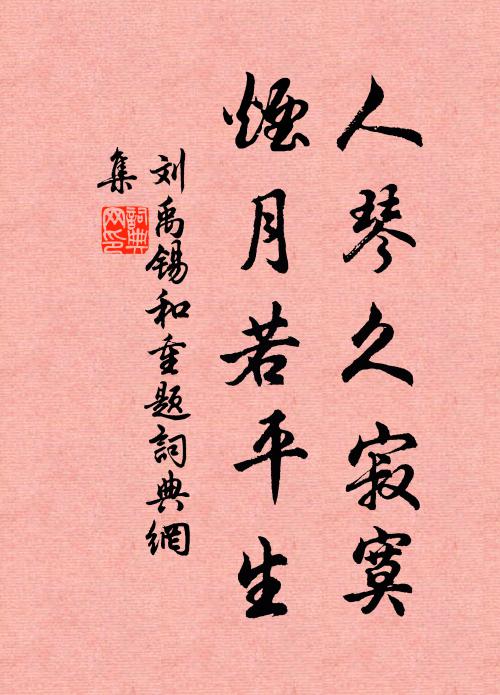 人琴久寂寞
煙月若平生
刘禹锡和重题詞典網
集
詞典網印